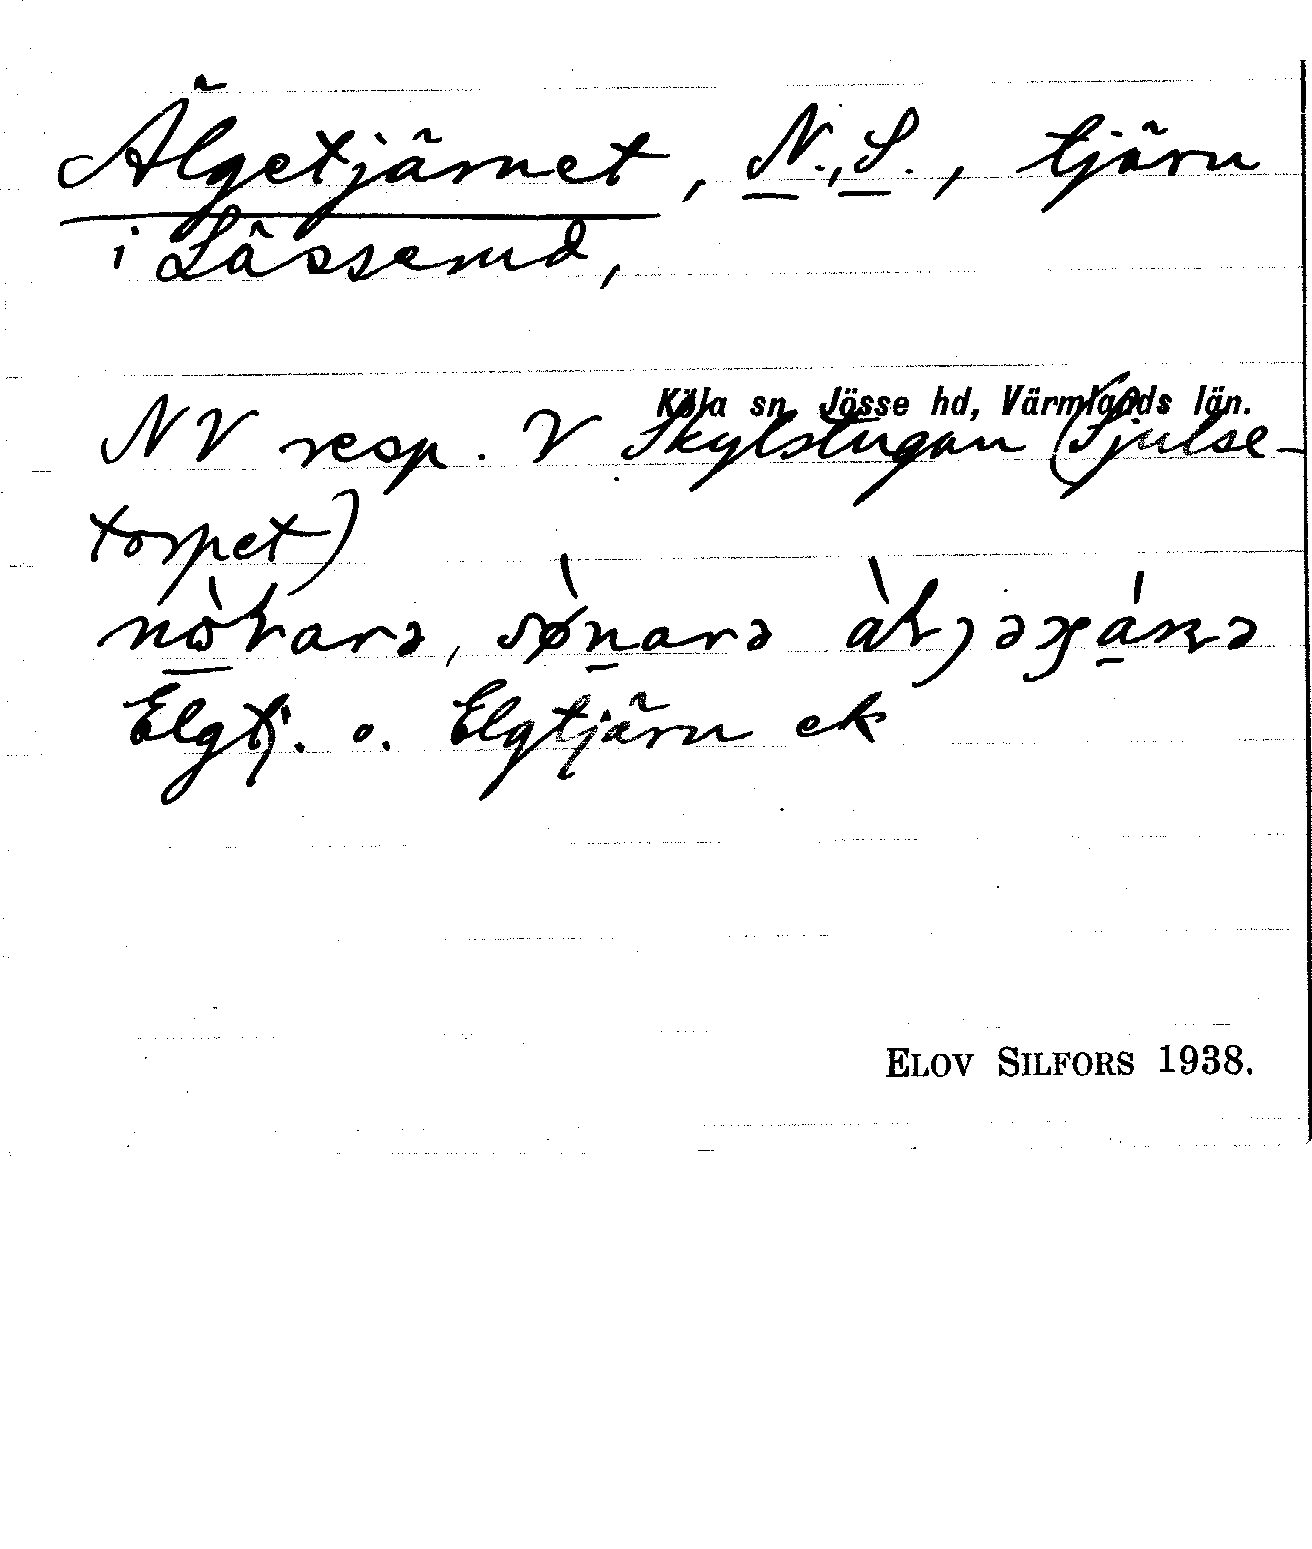 Älgetjärnet, N., S., tjärn
i Lässerud,
Köla sn, Jösse hd, Värmlands län.
NV resp. V Skylstugan (Sjulse-
torpet)
Elgtj. o. Elgtjärn ek
ELOV SILFORS 1938.